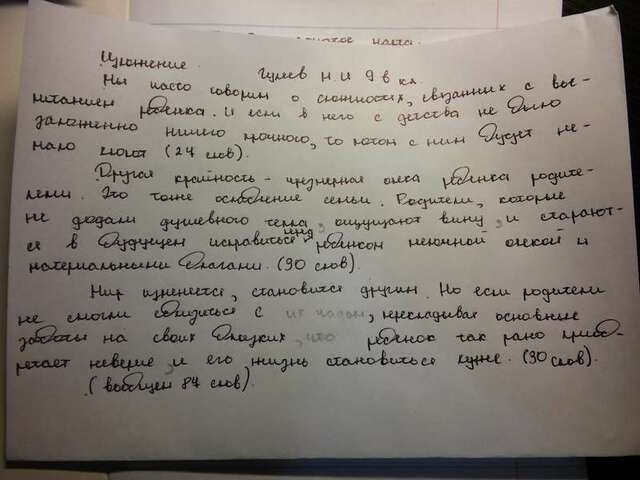 Изложение. Гуцев Н И 9 в кл.
Мы часто говорим о сложностях, связанных с вос-
питанием ребёнка. И если в него с детства не было
заложенно ничего прочного, то потом с ним будет не-
мало хлопот (24 слов).
Другая крайность - чрезмерная опека ребёнка родите-
лями. Это тоже ослабление семьи. Родители, которые
не додали душевного тепла, ощущают вину, и старают-
ся в будущем исправиться ребёнком мелочной опекой и
материальными благами. (30 слов).
Мир изменяется, становится другим. Но если родители
не смогли сблизиться с перекладывая основные
заботы на своих близких, что ребёнок так рано приоб-
ретает неверие, и его жизнь становиться хуже. (30 слов).
(вообщем 84 слов).